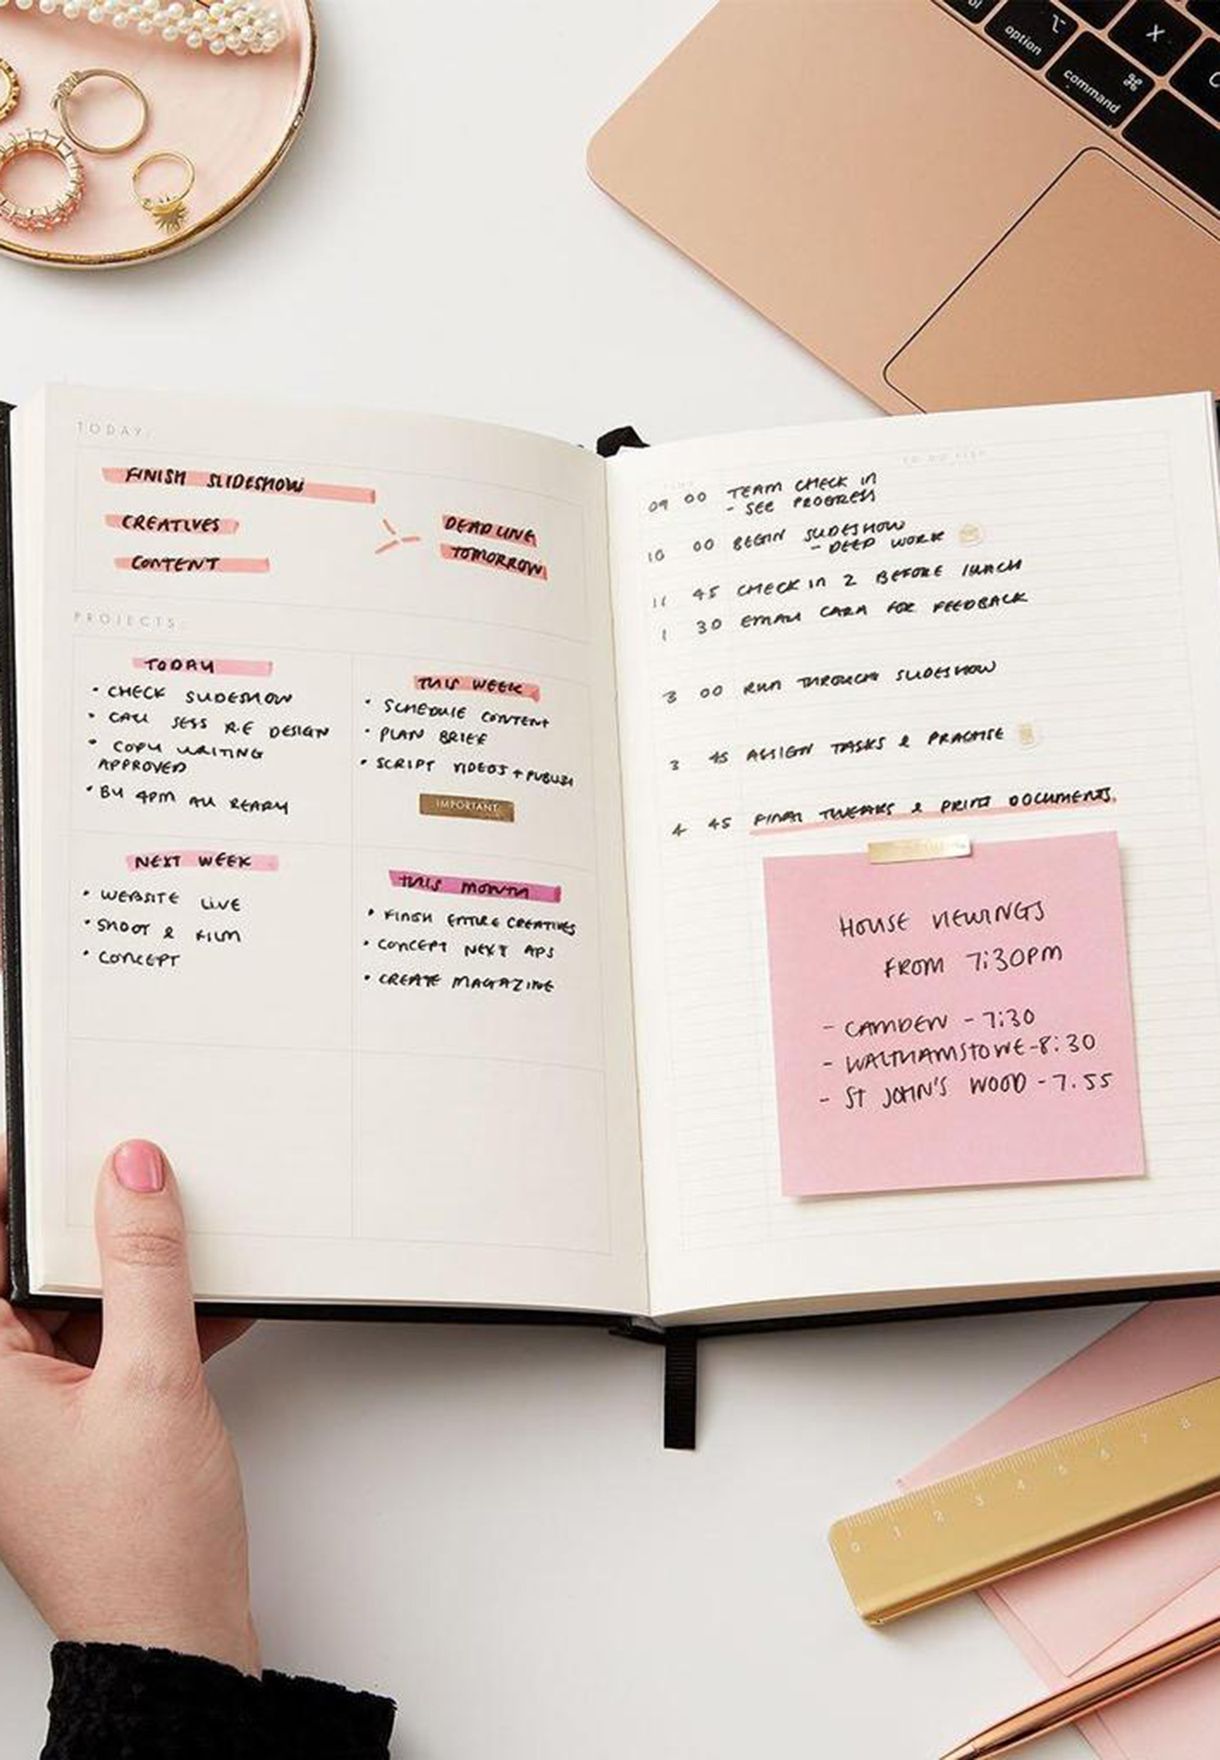 option
command
⌘
X
TODAY:
FINISH SLIDESHOW
CREATIVES
CONTENT
DEADLINE
TOMORROW
PROJECTS:
TODAY
• CHECK SLIDESHOW
• CALL JESS R.E DESIGN
• COPY WRITING
APPROVED
• BY 4PM ALL READY
THIS WEEK
• SCHEDULE CONTENT
• PLAN BRIEF
• SCRIPT VIDEOS + PUBLISH
IMPORTANT
NEXT WEEK
• WEBSITE LIVE
• SHOOT & FILM
• CONCEPT
THIS MONTH
• FINISH ENTIRE CREATIVES
• CONCEPT NEXT APS
• CREATE MAGAZINE
TO DO LIST
09 00 TEAM CHECK IN
- SEE PROGRESS
10 00 BEGIN SLIDESHOW
- DEEP WORK
11 45 CHECK IN 2 BEFORE LUNCH
1 30 EMAIL CARA FOR FEEDBACK
3 00 RUN THROUGH SLIDESHOW
3 45 ASSIGN TASKS & PRACTISE
4 45 FINAL TWEAKS & PRINT DOCUMENTS.
HOUSE VIEWINGS
FROM 7:30PM
- CAMDEN - 7:30
- WALTHAMSTOWE - 8:30
- ST JOHN'S WOOD - 7.55
0 1 2 3 4 5 6 7 8